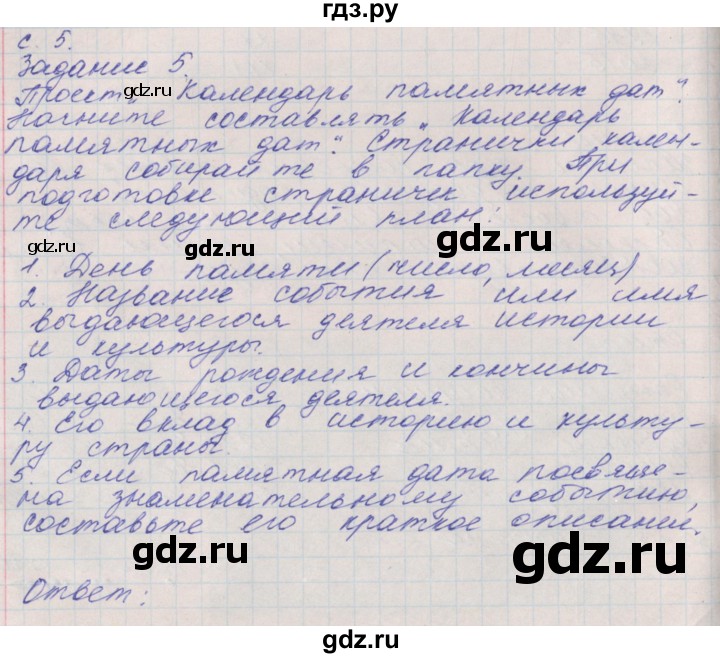 гдз.ру
с. 5.
Задание 5.
Проект „Календарь памятных дат".
Начните составлять „Календарь
памятных дат". Странички кален-
даря собирайте в папку. При
подготовке страничек используй-
те следующий план:
1. День памяти (число, месяц)
2. Название события или имя
выдающегося деятеля истории
и культуры.
3. Даты рождения и кончины
выдающегося деятеля.
4. Его вклад в историю и культу-
ру страны.
5. Если памятная дата посвяще-
на знаменательному событию,
составьте его краткое описаней.
Ответ:
gdz.ru
gdz.ru
gdz.ru
gdz.ru
gdz.ru
gdz.ru
gdz.ru
gdz.ru
gdz.ru
gdz.ru